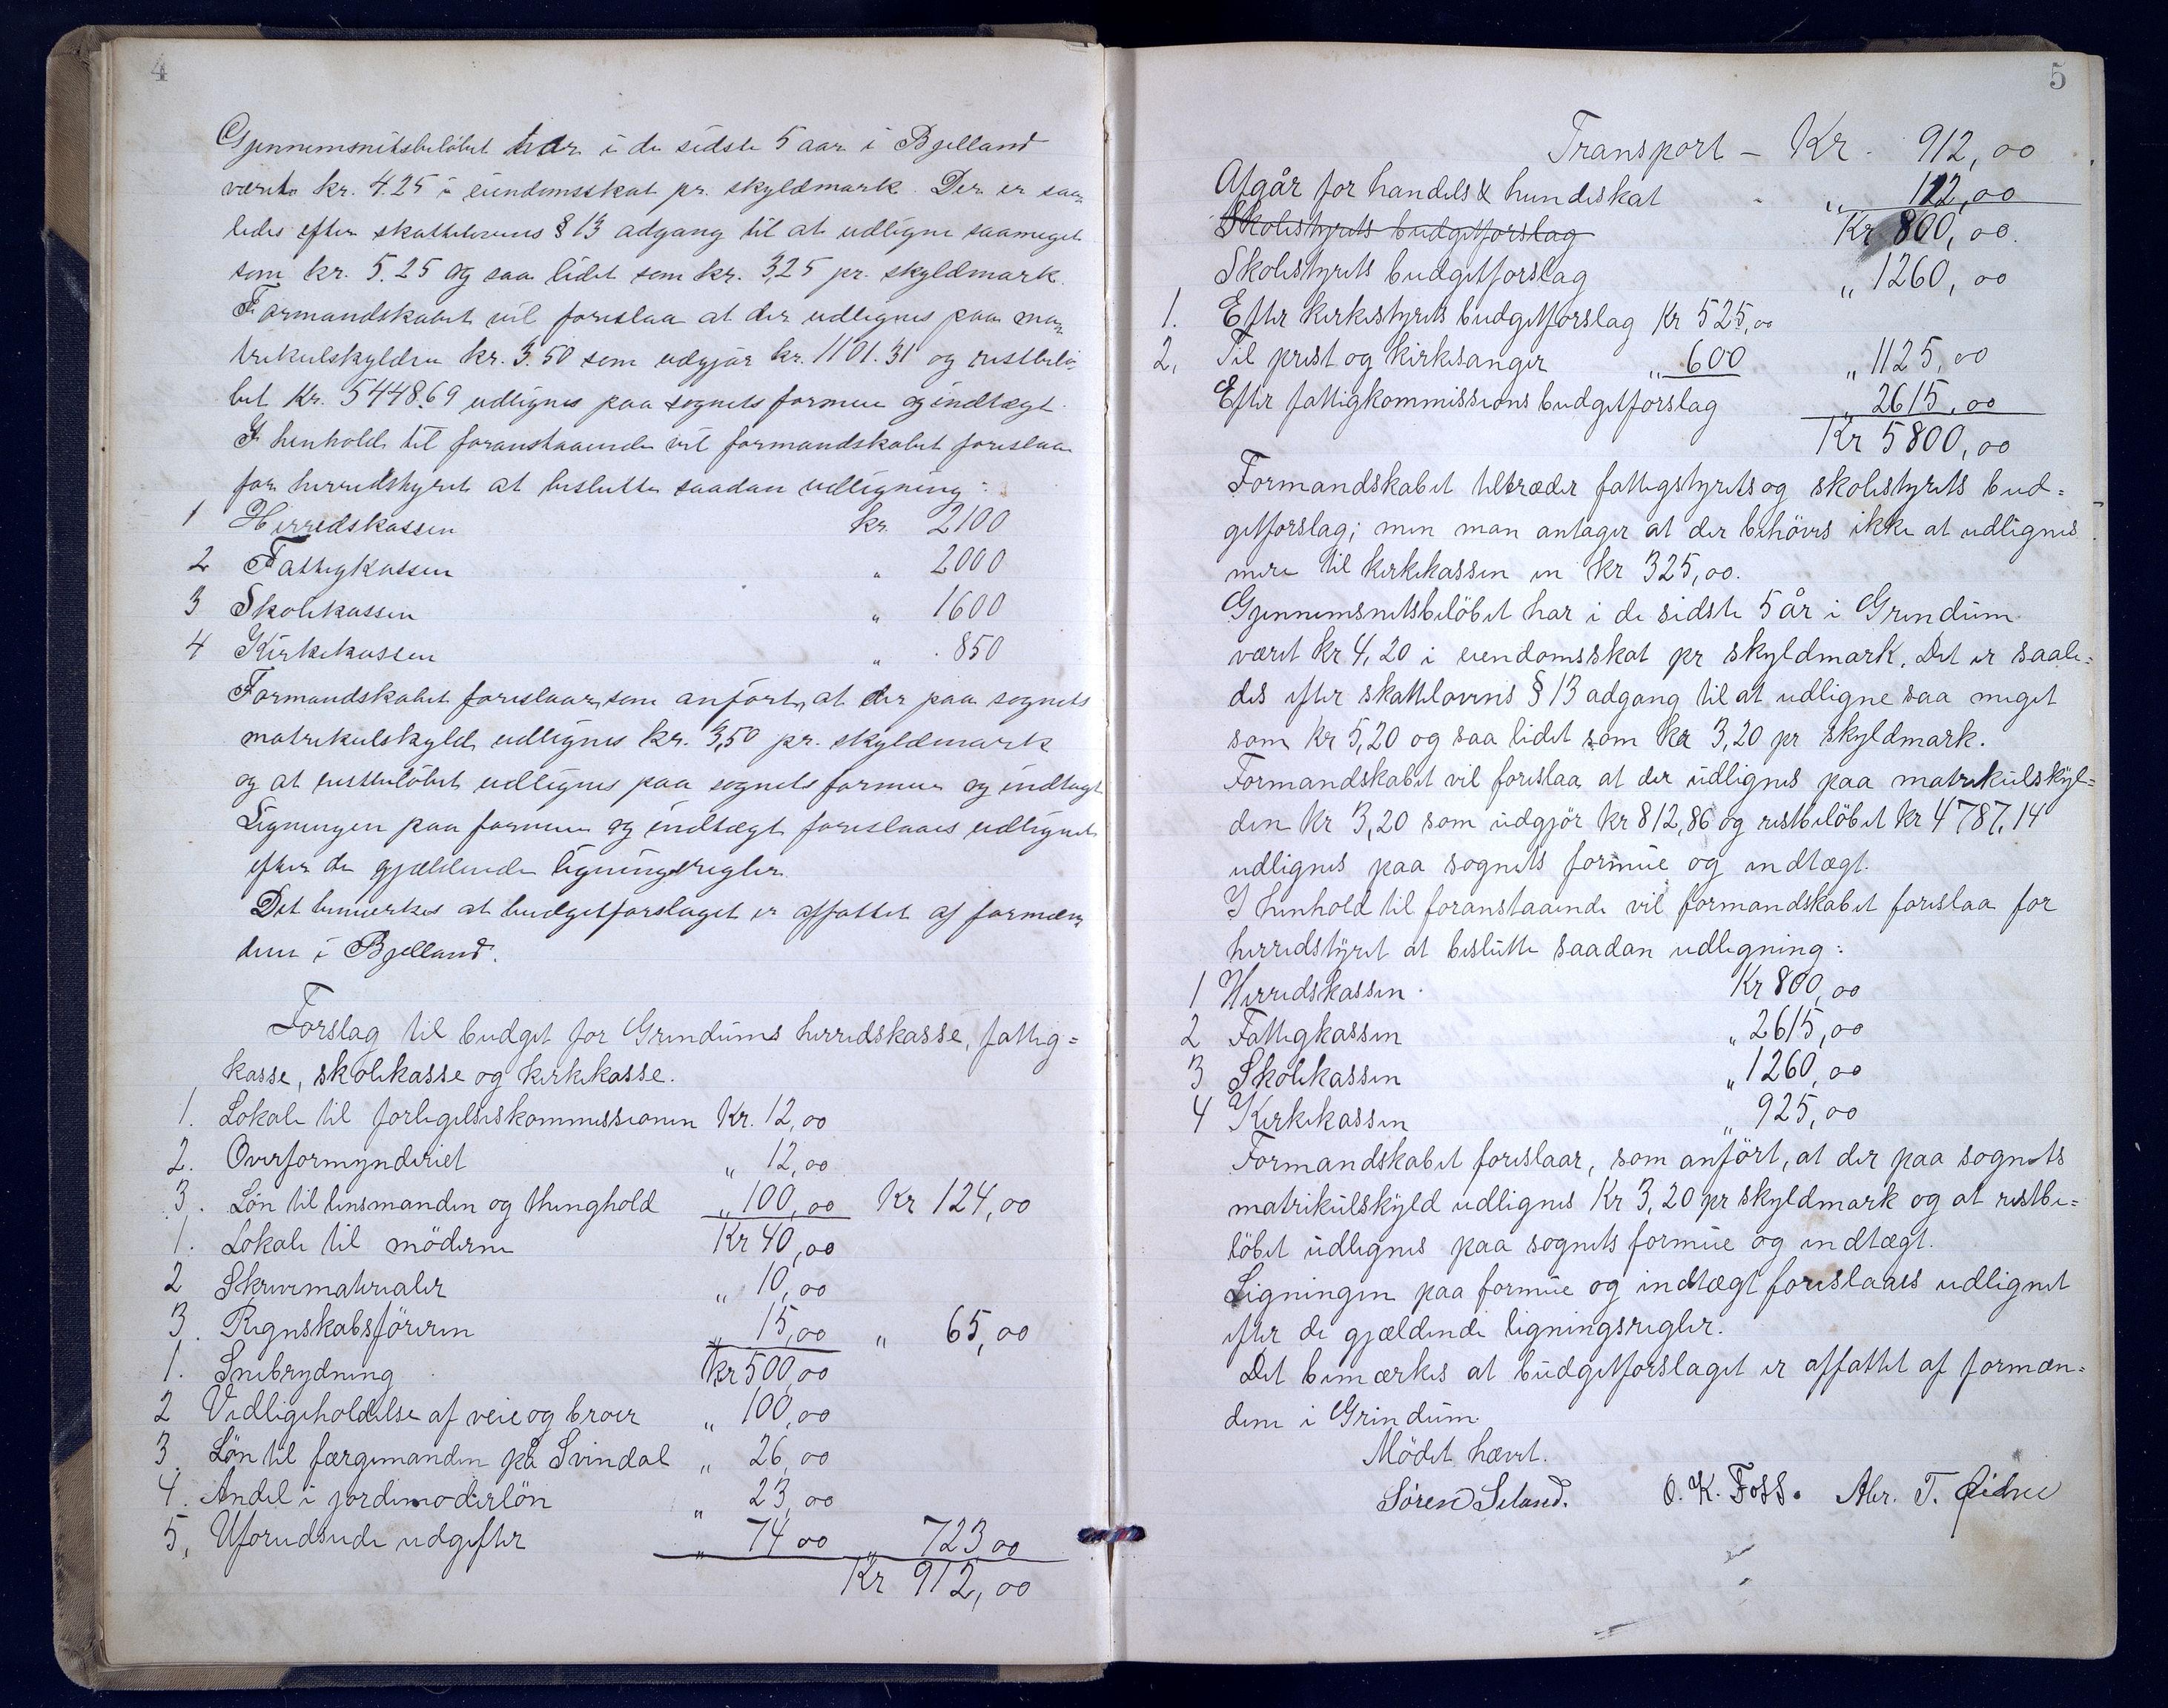 4
Gjennemsnitsbeløbet har i de sidste 5 aar i Bjelland
været kr. 4.25 i eiendomsskat pr. skyldmark. Der er saa„
ledes efter skattelovens § 13 adgang til at udligne saameget
som kr. 5.25 og saa lidet som kr. 3,25 pr. skyldmark.
Formandskabet vil foreslaa at der udlignes paa ma„
trikulskylden kr. 3.50 som udgjør kr. 1101.31 og restbelø„
bet kr. 5448.69 udlignes paa sognets formue og indtægt.
I henhold til foranstaaende vil formandskabet foreslaa
for herredstyret at beslutte saadan udligning:
1 Herredskassen kr. 2100
2 Fattigkassen „ 2000
3 Skolekassen „ 1600
4 Kirkekassen „ 850
Formandskabet foreslaar, som anført, at der paa sognets
matrikulskyld udlignes kr. 3,50 pr. skyldmark
og at restbeløbet udlignes paa sognets formue og indtægt
Ligningen paa formue og indtægt foreslaaes udlignet
efter de gjældende ligningsregler.
Det bemærkes at budgetforslaget er affattet af formæn„
dene i Bjelland.
Forslag til budget for Grindums herredskasse, fattig=
kasse, skolekasse og kirkekasse.
1. Lokale til forligelseskommissionen Kr. 12,00
2. Overformynderiet „ 12,00
3. Løn til lensmanden og thinghold „ 100,00 Kr 124,00
1. Lokale til møderne Kr 40,00
2 Skrivematerialer „ 10,00
3. Regnskabsføreren „ 15,00 „ 65,00
1. Snebrydning Kr 500,00
2 Vedligeholdelse af veie og broer „ 100,00
3. Løn til færgemanden på Svindal „ 26,00
4. Andel i jordemoderløn „ 23,00
5, Uforudseede udgifter „ 74 00 „ 723 00
Kr 912,00
5
Transport – Kr. 912,00
Afgår for handels & hundeskat „ 112,00
Skolestyrets budgetforslag Kr 800,00.
Skolestyrets budgetforslag „ 1260,00
1. Efter kirkestyrets budgetforslag Kr 525,00
2, Til prest og kirksanger „ 600 „ 1125,00
Efter fattigkommissions budgetforslag „ 2615,00
Kr 5800,00
Formandskabet tiltræder fattigstyrets og skolestyrets bud=
getforslag; men man antager at der behøves ikke at udlignes
mere til kirkekassen en kr 325,00.
Gjennemsnitsbeløbet har i de sidste 5 år i Grindum
været kr 4,20 i eiendomsskat pr skyldmark. Det er saale=
des efter skattelovens § 13 adgang til at udligne saa meget
som kr 5,20 og saa lidet som kr 3,20 pr skyldmark.
Formandskabet vil foreslaa at der udlignes paa matrikulskyl=
den kr 3,20 som udgjør kr 812,86 og restbeløbet kr 4787,14
udlignes paa sognets formue og indtægt.
I henhold til foranstaaende vil formandskabet foreslaa for
herredstyret at beslutte saadan udligning:
1 Herredskassen Kr 800,00
2 Fattigkassen „ 2615,00
3 Skolekassen „ 1260,00
4 Kirkekassen „ 925,00
Formandskabet foreslaar, som anført, at der paa sognets
matrikulskyld udlignes Kr 3,20 pr skyldmark og at restbe=
løbet udlignes paa sognets formue og indtægt.
Ligningen paa formue og indtægt foreslaaes udlignet
efter de gjældende ligningsregler.
Det bemærkes at budgetforslaget er affattet af formæn=
dene i Grindum.
Mødet hævet.
Sören Seland. O. K. Foss. Abr. T.